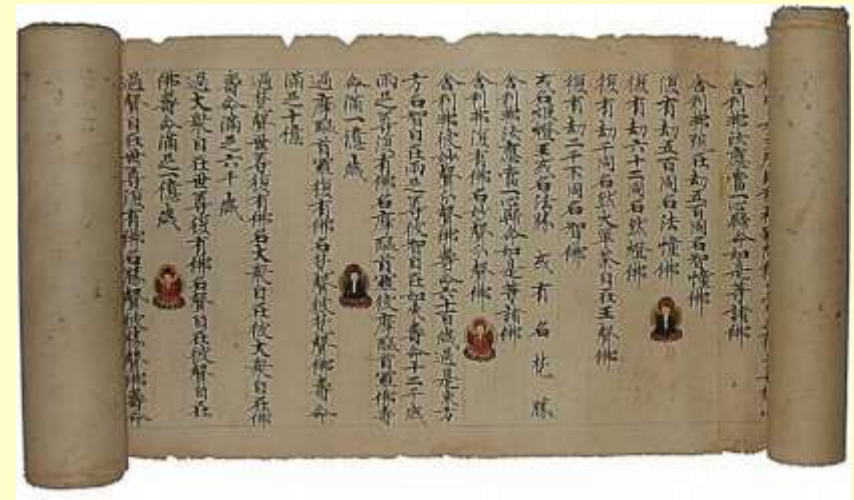 舍利弗汝應當一心歸命如是等諸佛
舍利弗復在劫五百同名智幢佛
復有劫五百同名法幢佛
復有劫六十二同名然燈佛
復有劫千同名然大軍荼自在王聲佛
復有劫二千下同名智佛
或名燈王或名法勝 或有名梵勝
舍利弗汝應當一心歸命如是等諸佛
舍利弗復有佛名妙聲分聲佛
舍利弗彼妙聲分聲佛壽命六十百歲過是東方
方名智自在兩足尊彼智自在如來壽命十二千歲
兩足尊復有佛名摩醯首羅彼摩醯首羅佛壽
命滿一億歲
過摩醯首羅復有佛名梵聲彼梵聲佛壽命
滿足十億
過梵聲世尊復有佛名大衆自在彼大衆自在佛
壽命滿足六千歲
過大衆自在世尊復有佛名聲自在彼聲自在
佛壽命滿足一億歲
過聲自在世尊復有佛名勝聲彼勝聲佛壽命